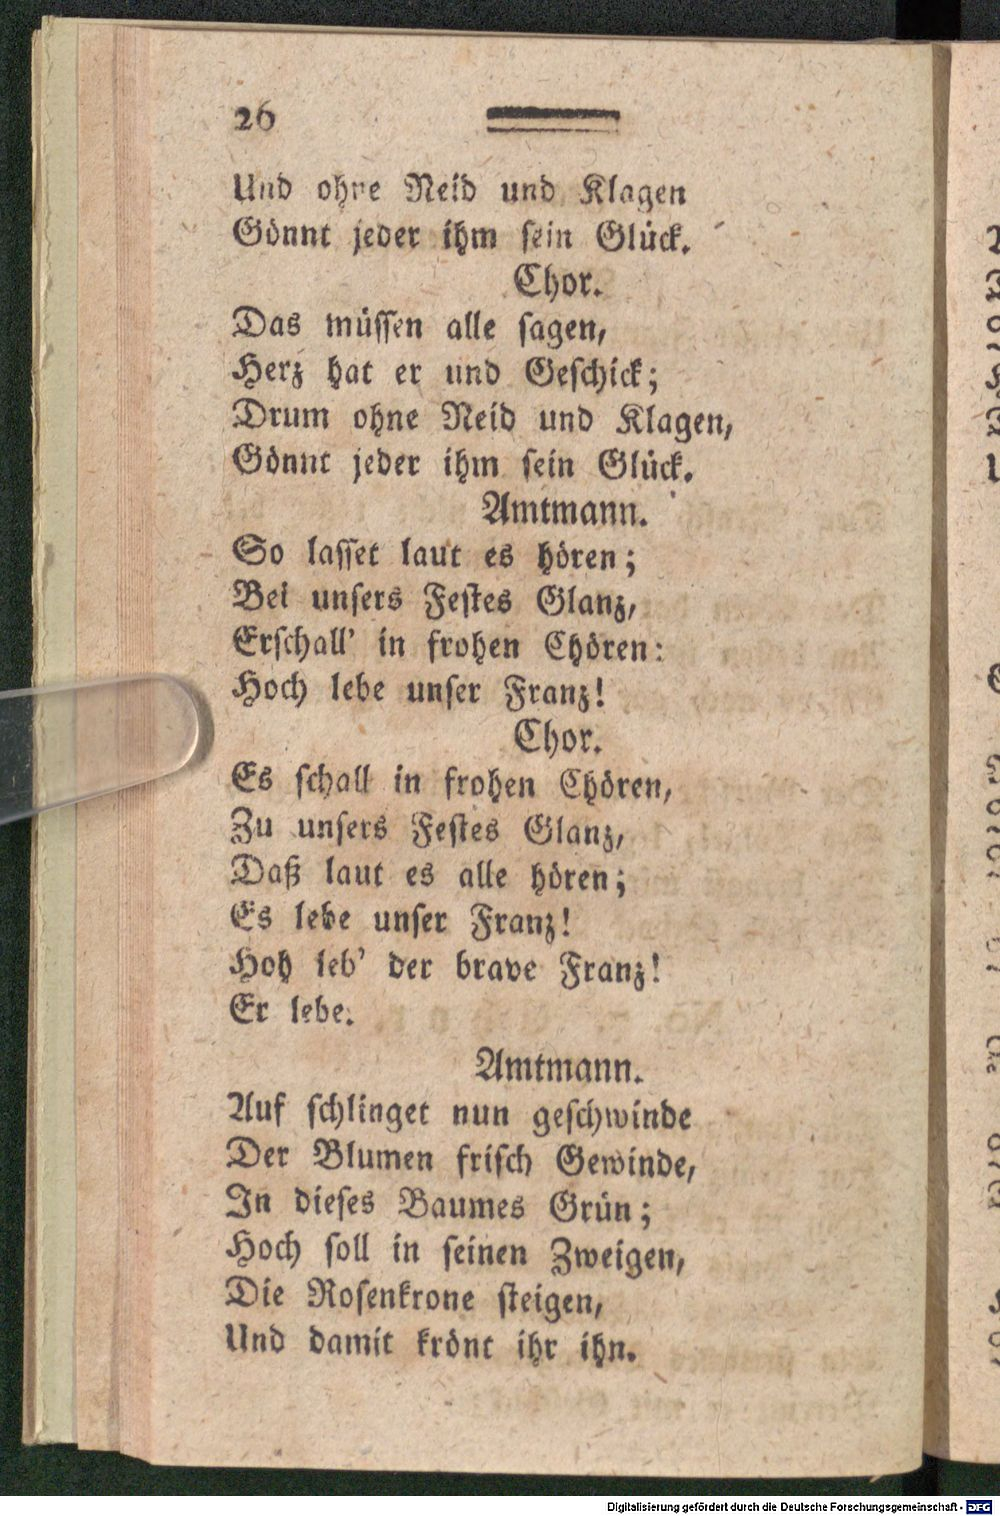 26
Und ohne Neid und Klagen
Gönnt jeder ihm sein Glück.
Chor.
Das müssen alle sagen,
Herz hat er und Geschick;
Drum ohne Neid und Klagen,
Gönnt jeder ihm sein Glück.
Amtmann.
So lasset laut es hören;
Bei unsers Festes Glanz,
Erschall' in frohen Chören:
Hoch lebe unser Franz!
Chor.
Es schall in frohen Chören,
Zu unsers Festes Glanz,
Daß laut es alle hören;
Es lebe unser Franz!
Hoh leb' der brave Franz!
Er lebe.
Amtmann.
Auf schlinget nun geschwinde
Der Blumen frisch Gewinde,
In dieses Baumes Grün;
Hoch soll in seinen Zweigen,
Die Rosenkrone steigen,
Und damit krönt ihr ihn.
Digitalisierung gefördert durch die Deutsche Forschungsgemeinschaft - DFG